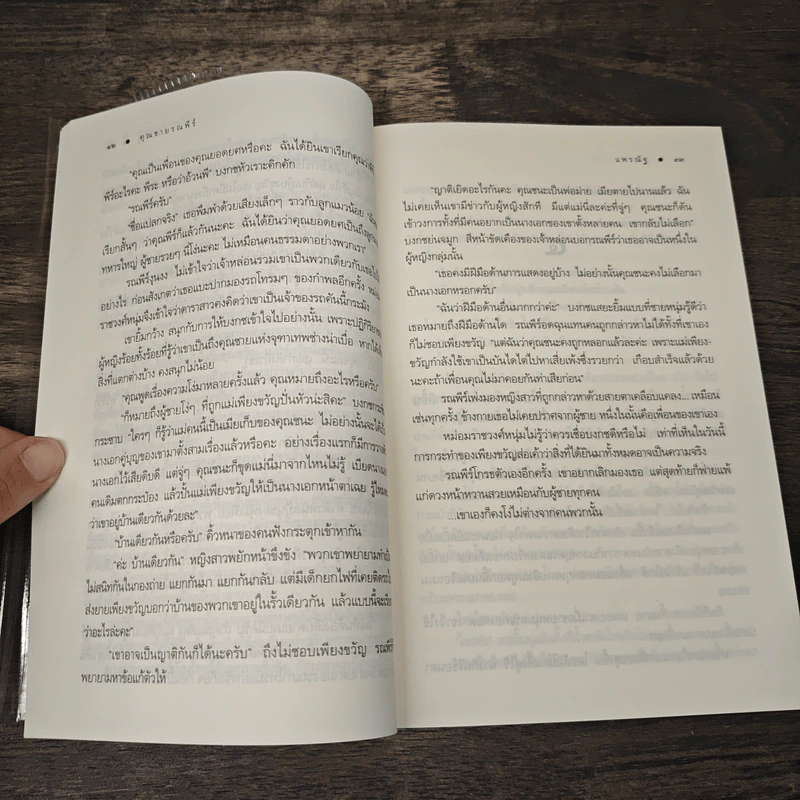 ๑๒ • คุณชายรณพีร์
"คุณเป็นเพื่อนของคุณยอดยศหรือคะ ฉันได้ยินเขาเรียกคุณว่า
พีร์อะไรคะ พีระ หรือว่าอ้วนพี" บงกชหัวเราะคิกคัก
"รณพีร์ครับ"
"ชื่อแปลกจริง" เธอพึมพำด้วยเสียงเล็กๆ ราวกับลูกแมวน้อย
เรียกสั้นๆ ว่าคุณพีร์ก็แล้วกันนะคะ ฉันได้ยินว่าคุณยอดยศเป็นถึงลูก
ทหารใหญ่ ผู้ชายรวยๆ นี่โง่นะคะ ไม่เหมือนคนธรรมดาอย่างพวกเรา"
รณพีร์งุนงง ไม่เข้าใจว่าเจ้าหล่อนรวมเขาเป็นพวกเดียวกับเธอ
อย่างไร ก่อนสังเกตว่าเธอแบะปากมองรถโทรมๆ ของกำพลอีกครั้ง
ราชวงศ์หนุ่มจึงเข้าใจว่าดาราสาวคงคิดว่าเขาเป็นเจ้าของรถคันนี้กระมัง
เขายิ้มกว้าง สนุกกับการให้บงกชเข้าใจไปอย่างนั้น เพราะปฏิกิริยา
ผู้หญิงร้อยทั้งร้อยที่รู้ว่าเขาเป็นถึงคุณชายแห่งจุฑาเทพช่างน่าเบื่อ หากได้
สิ่งที่แตกต่างบ้าง คงสนุกไม่น้อย
"คุณพูดเรื่องความโง่มาหลายครั้งแล้ว คุณหมายถึงอะไรหรือครับ"
"ก็หมายถึงผู้ชายโง่ๆ ที่ถูกแม่เพียงขวัญปั่นหัวน่ะสิคะ" บงกช
กระซาบ "ใครๆ ก็รู้ว่าแม่คนนี้เป็นเมียเก็บของคุณชนะ ไม่อย่างนั้นจะได้
นางเอกคู่บุญของเขามาตั้งสามเรื่องแล้วหรือคะ อย่างเรื่องแรกก็มีการ
นางเอกไว้เสียดิบดี แต่จู่ๆ คุณชนะก็ขุดแม่นี่มาจากไหนไม่รู้ เบียดนาง
คนเดิมตกกระป๋อง แล้วปั้นแม่เพียงขวัญให้เป็นนางเอกหน้าตาเฉย รู้ไหมคะ
ว่าเขาอยู่บ้านเดียวกันด้วยละ"
"บ้านเดียวกันหรือครับ" คิ้วหนาของคนฟังกระตุกเข้าหากัน
"ค่ะ บ้านเดียวกัน" หญิงสาวพยักหน้าขึงขัง "พวกเขาพยายามทำ
ไม่สนิทกันในกองถ่าย แยกกันมา แยกกันกลับ แต่มีเด็กยกไฟที่เคยติดรถ
ส่งยายเพียงขวัญบอกว่าบ้านของพวกเขาอยู่ในรั้วเดียวกัน แล้วแบบนี้จะเรียก
ว่าอะไรล่ะคะ"
"เขาอาจเป็นญาติกันก็ได้นะครับ" ถึงไม่ชอบเพียงขวัญ รณพีร์
พยายามหาข้อแก้ตัวให้
แพรณัฐ • ๑๓
"ญาติเยิดอะไรกันคะ คุณชนะเป็นพ่อม่าย เมียตายไปนานแล้ว ฉัน
ไม่เคยเห็นเขามีข่าวกับผู้หญิงสักที มีแต่แม่นี่ละค่ะที่จู่ๆ คุณชนะก็ดัน
เข้าวงการทั้งที่มีคนอยากเป็นนางเอกของเขาตั้งหลายคน เขากลับไม่เลือก"
บงกชย่นจมูก สีหน้าขัดเคืองของเจ้าหล่อนบอกรณพีร์ว่าเธออาจเป็นหนึ่งใน
ผู้หญิงกลุ่มนั้น
"เธอคงมีฝีมือด้านการแสดงอยู่บ้าง ไม่อย่างนั้นคุณชนะคงไม่เลือกมา
เป็นนางเอกหรอกครับ"
"ฉันว่าฝีมือด้านอื่นมากกว่าค่ะ" บงกชแสยะยิ้มแบบที่ชายหนุ่มรู้ดีว่า
เธอหมายถึงฝีมือด้านใด รณพีร์อดฉุนแทนคนถูกกล่าวหาไม่ได้ทั้งที่เขาเอง
ก็ไม่ชอบเพียงขวัญ "แต่ฉันว่าคุณชนะคงถูกหลอกแล้วละค่ะ เพราะแม่เพียง-
ขวัญกำลังใช้เขาเป็นบันไดไต่ไปหาเสี่ยเพ้งซึ่งรวยกว่า เกือบสำเร็จแล้วด้วย
นะคะถ้าเพื่อนคุณไม่มาคอยกันท่าเสียก่อน"
รณพีร์เพ่งมองหญิงสาวที่ถูกกล่าวหาด้วยสายตาเคลือบแคลง...เหมือน
เช่นทุกครั้ง ข้างกายเธอไม่เคยปราศจากผู้ชาย หนึ่งในนั้นคือเพื่อนของเขาเอง
หม่อมราชวงศ์หนุ่มไม่รู้ว่าควรเชื่อบงกชดีหรือไม่ เท่าที่เห็นในวันนี้
การกระทำของเพียงขวัญส่อเค้าว่าสิ่งที่ได้ยินมาทั้งหมดอาจเป็นความจริง
รณพีร์โกรธตัวเองอีกครั้ง เขาอยากเลิกมองเธอ แต่สุดท้ายก็พ่ายแพ้
แก่ดวงหน้าหวานสวยเหมือนกับผู้ชายทุกคน
...เขาเองก็คงโง่ไม่ต่างจากคนพวกนั้น